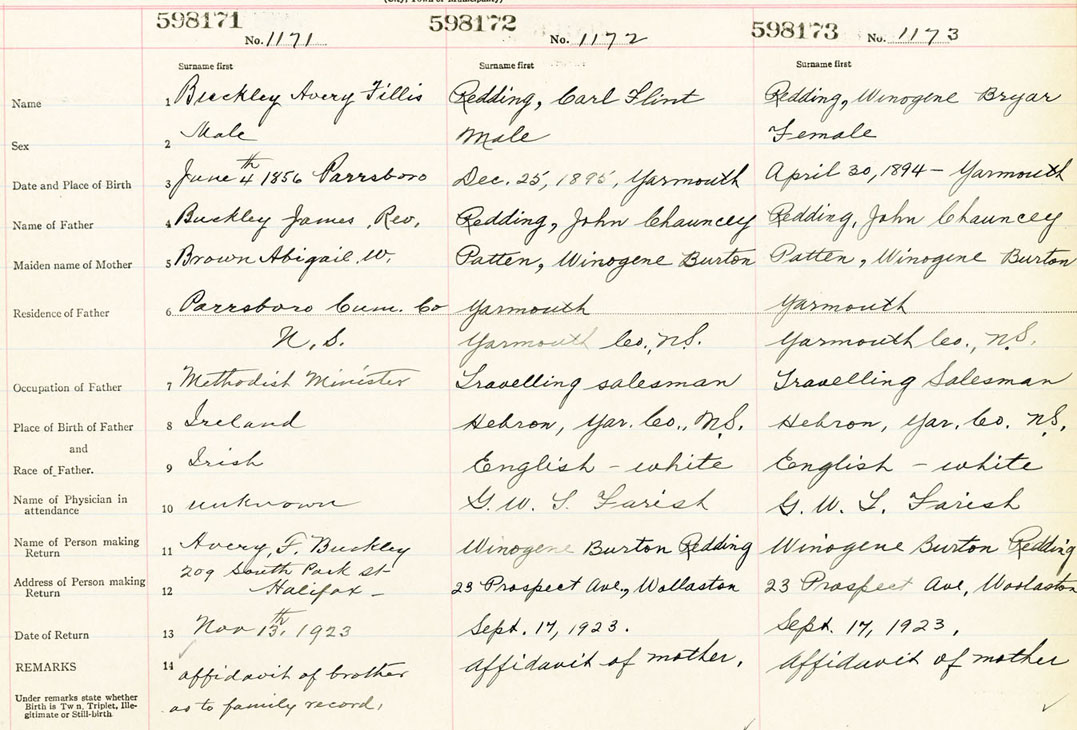 (City, Town or Municipality)
598171 598172 598173
No. 1171 No. 1172 No. 1173
Surname first Surname first Surname first
Name 1 Buckley Avery Fillis Redding, Carl Flint Redding, Winogene Bryar
Sex 2 Male Male Female
Date and Place of Birth 3 June 4th 1856 Parrsboro Dec. 25, 1895, Yarmouth April 30, 1894 - Yarmouth
Name of Father 4 Buckley James, Rev, Redding, John Chauncey Redding, John Chauncey
Maiden name of Mother 5 Brown Abigail. W, Patten, Winogene Burton Patten, Winogene Burton
Residence of Father 6 Parrsboro Cum. Co Yarmouth Yarmouth
N, S. Yarmouth Co., N.S. Yarmouth Co., N.S.
Occupation of Father 7 Methodist Minister Travelling salesman Travelling Salesman
Place of Birth of Father 8 Ireland Hebron, Yar. Co., N.S. Hebron, Yar. Co. N.S.
and
Race of Father. 9 Irish English - white English - white
Name of Physician in
attendance 10 unknown G. W. T. Farish G. W. T. Farish
Name of Person making
Return 11 Avery, F. Buckley Winogene Burton Redding Winogene Burton Redding
Address of Person making 209 South Park St
Return 12 Halifax - 23 Prospect Ave., Wollaston 23 Prospect Ave, Woolaston
Date of Return 13 Nov 13th, 1923 Sept. 17, 1923. Sept. 17, 1923.
REMARKS 14 affidavit of brother Affidavit of mother. Affidavit of mother
Under remarks state whether
Birth is Tw n, Triplet, Ille-
gitimate or Still-birth as to family record,